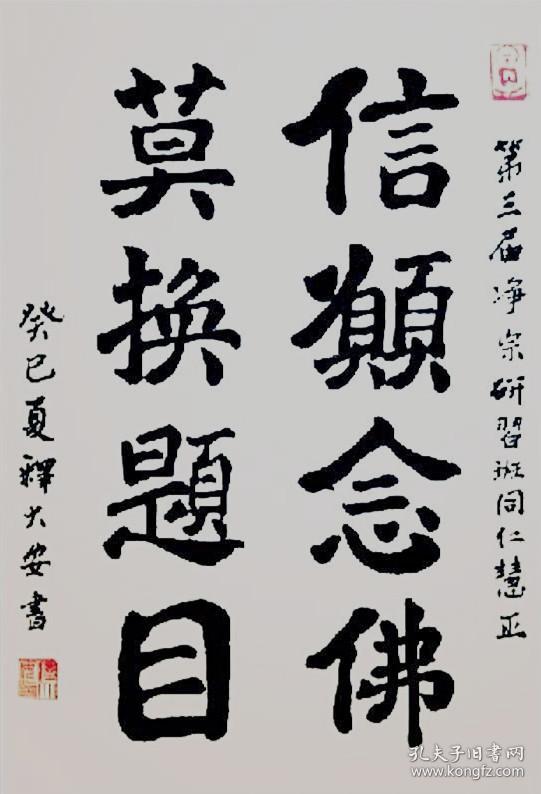 第三届净宗研习班同仁慧正
信願念佛
莫换题目
癸巳夏釋大安書
孔夫子旧书网
www.kongfz.com